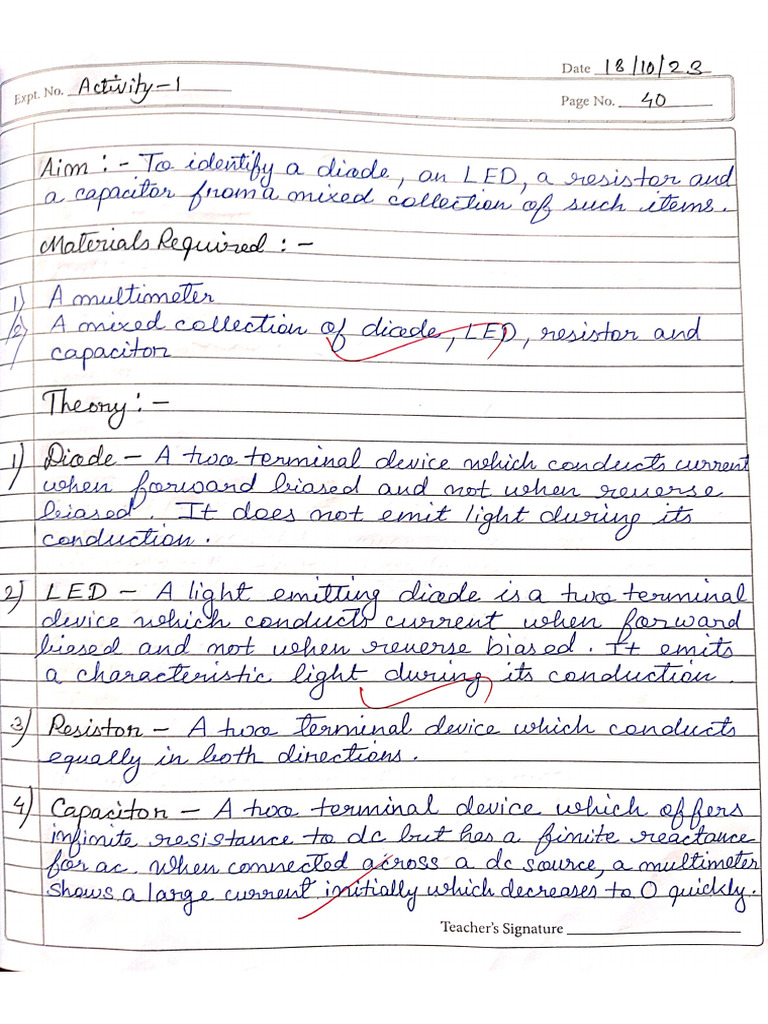 Date 18/10/23
Expt. No. Activity-1
Page No. 40
Aim : - To identify a diode, an LED, a resistor and
a capacitor from a mixed collection of such items.
Materials Required : -
1) A multimeter
2) A mixed collection of diode, LED, resistor and
capacitor
Theory : -
1) Diode - A two terminal device which conducts current
when forward biased and not when reverse
biased. It does not emit light during its
conduction.
2) LED - A light emitting diode is a two terminal
device which conducts current when forward
biased and not when reverse biased. It emits
a characteristic light during its conduction.
3) Resistor - A two terminal device which conducts
equally in both directions.
4) Capacitor - A two terminal device which offers
infinite resistance to dc but has a finite reactance
for ac. When connected across a dc source, a multimeter
shows a large current initially which decreases to 0 quickly.
Teacher's Signature